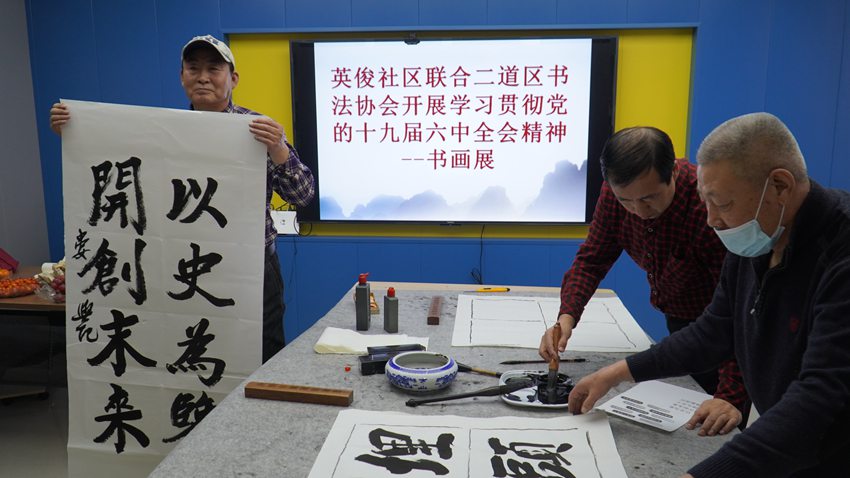 英俊社区联合二道区书
法协会开展学习贯彻党
的十九届六中全会精神
--书画展
以史為
開創未来